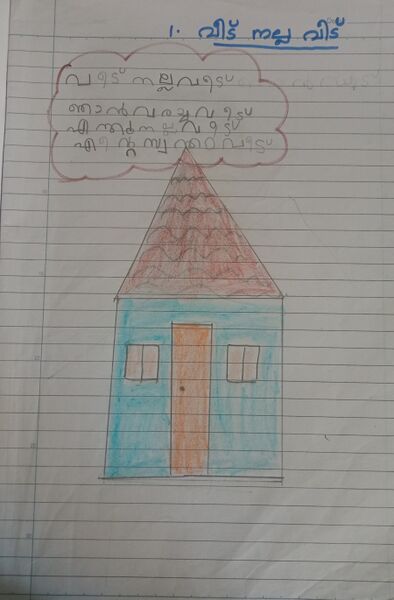 1. വീട് നല്ല വീട്
വീട് നല്ല വീട്
ഞാൻ വരച്ച വീട്
എന്തു നല്ല വീട്
എന്റെ സ്വന്തം വീട്